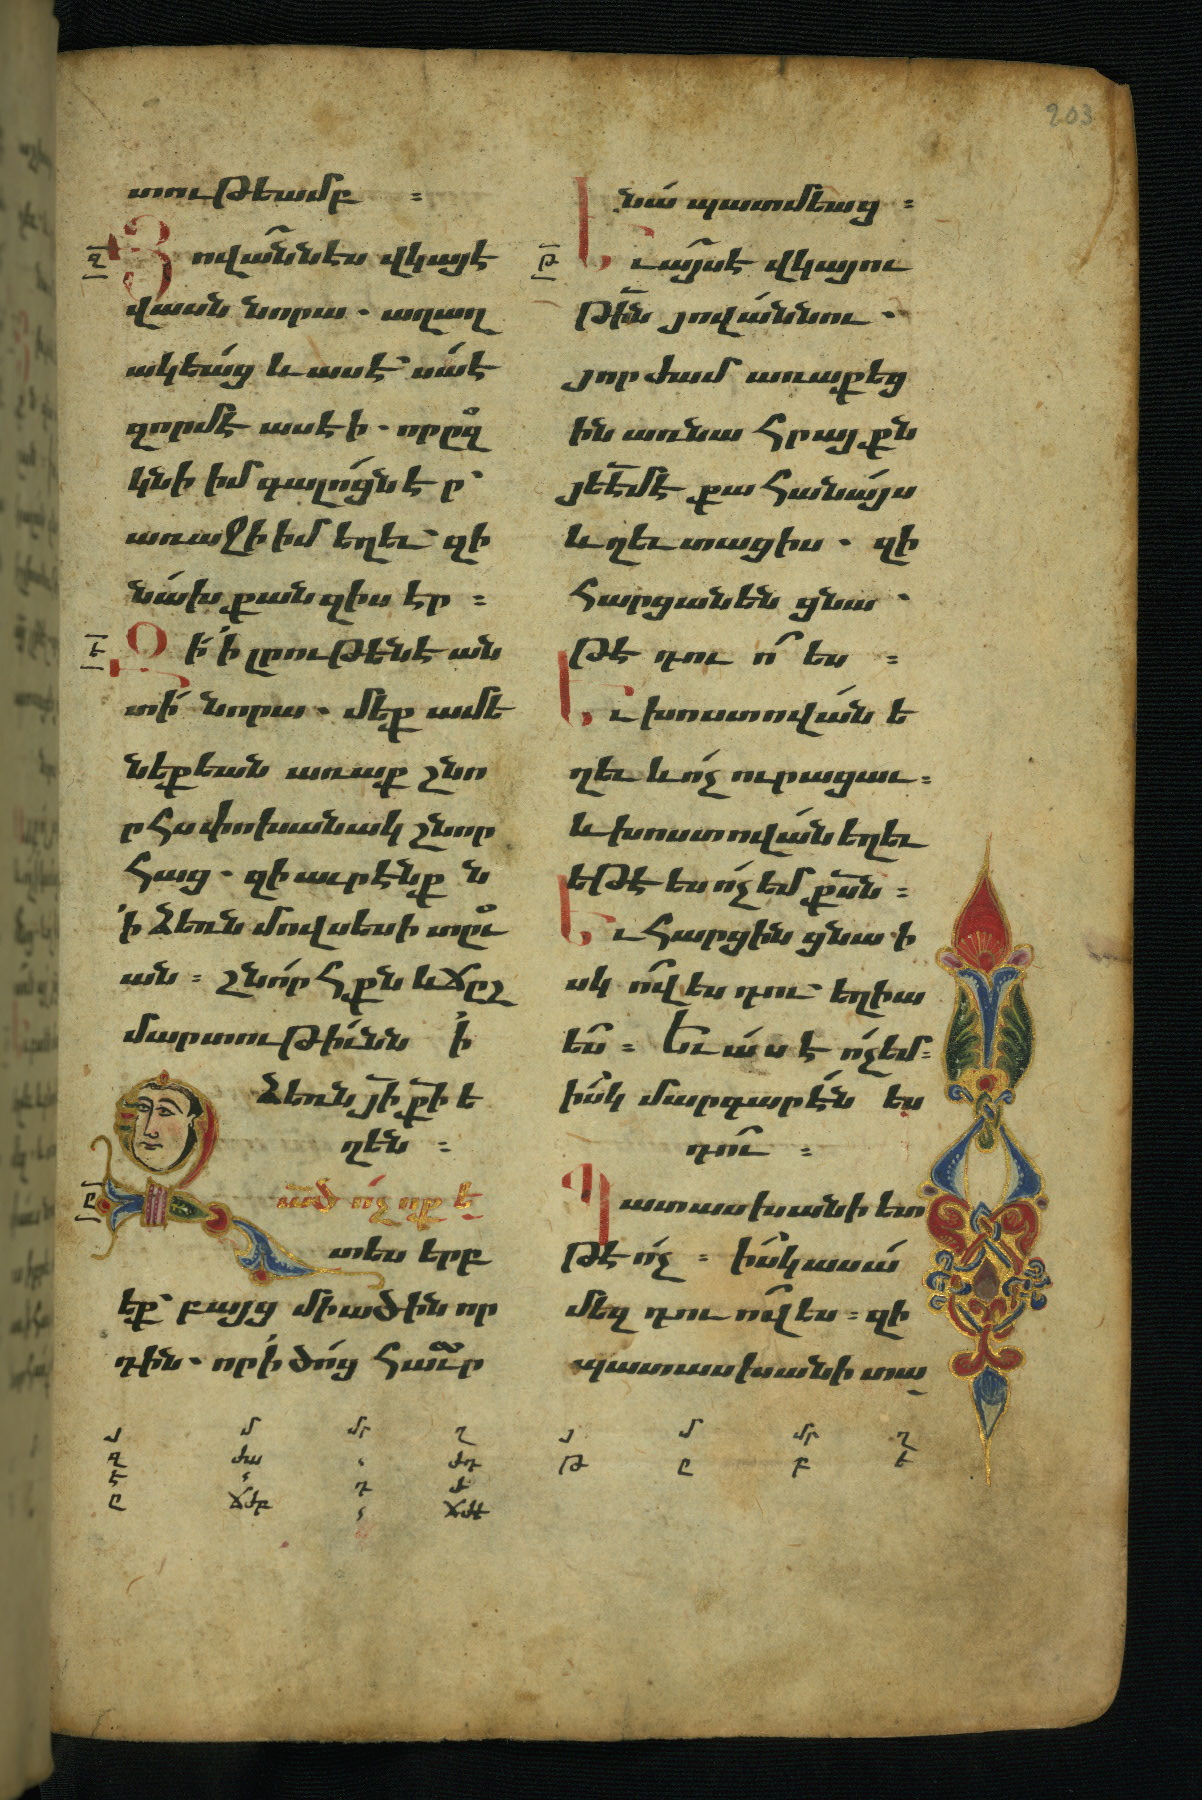 203
տութեամբ ։
զ
Յովաննէս վկայէ
վասն նորա · աղաղ
ակեաց և ասէ՝ սա է
զորմէ ասէի · որ ըզ
կնի իմ գալոցն է ը՝
առաջի իմ եղեւ՝ զի
նախ քան զիս էր ։
է
Զի ի լրութենէ ան
տի նորա · մեք ամե
նեքեան առաք շնո
րհս փոխանակ շնոր
հաց · զի աւրէնք ն
ի ձեռն մովսեսի տըւ
ան ։ շնորհքն և ճըշ
մարտութիւնն ի
ձեռն յի քի ե
ղեն ։
ը
Զած ոչ ոք ե
տես երբ
եք՝ բայց միածին որ
դին · որ ի ծոց հաւր
նա պատմեաց ։
թ
Եւ այս է վկայու
թին յովաննու ·
յորժամ առաքեց
ին առ նա հրայքն
յեէմէ քահանայս
և ղեւտացիս · զի
հարցանեն ցնա ·
թէ դու ո ես ։
Եւ խոստովան ե
ղեւ և ոչ ուրացաւ ։
և խոստովան եղեւ
եթէ ես ոչ եմ քսն ։
Եւ հարցին ցնա ի
սկ ով ես դու՝ եղիա
ես ։ Եւ ասէ ոչ եմ ։
իսկ մարգարէն ես
դու ։
Պատասխանի ետ
թէ ոչ ։ իսկ ասա
մեզ դու ով ես ։ զի
պատասխանի տա
յ մ մր ղ
զ ժա ՛ ժդ
է ՛ դ ժ
ը ճժբ ՛ ճժէ
յ մ մր ղ
թ ը բ է